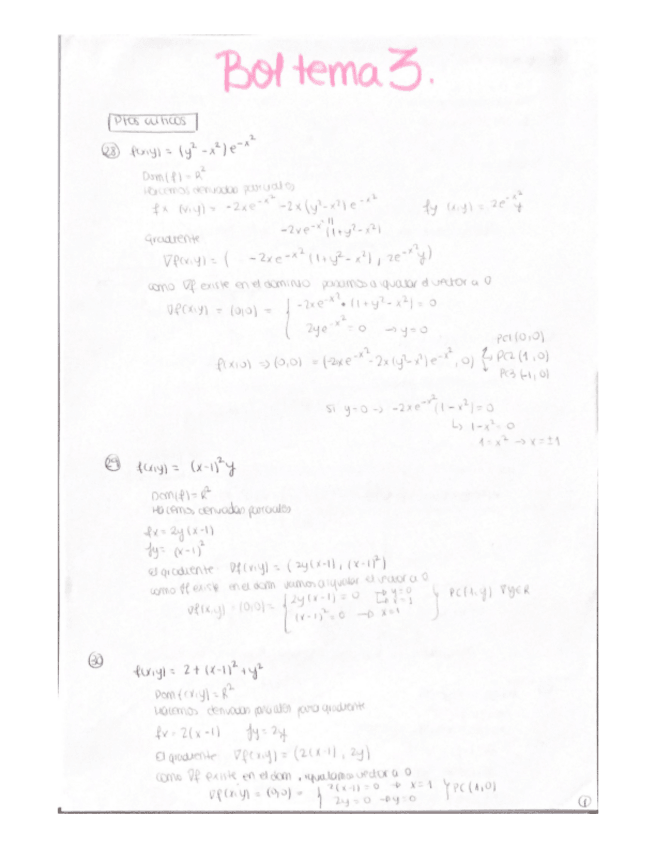 Bol tema 3.
Ptos críticos
28 f(x,y) = (y² - x²) e^-x²
Dom(f) = R²
Hacemos derivadas parciales
fx (x,y) = -2xe^-x² -2x(y²-x²) e^-x² fy (x,y) = 2e^-x² y
-2xe^-x² (1+y²-x²)
Gradiente
∇f(x,y) = ( -2xe^-x² (1+y²-x²) , 2e^-x² y)
como ∇f existe en el dominio pasamos a igualar el vector a 0
∇f(x,y) = (0,0) = { -2xe^-x² • (1+y²-x²) = 0
2ye^-x² = 0 → y=0
f(x,0) ⇒ (0,0) = (-2xe^-x² -2x(y²-x²)e^-x² , 0) { PC1 (0,0)
PC2 (1,0)
PC3 (-1,0)
si y=0 → -2xe^-x² (1-x²) = 0
↳ 1-x² = 0
1=x² → x=±1
29 f(x,y) = (x-1)² y
Dom(f) = R²
Hacemos derivadas parciales
fx = 2y(x-1)
fy = (x-1)²
El gradiente ∇f(x,y) = (2y(x-1), (x-1)²)
como ∇f existe en el dom vamos a igualar el vector a 0
∇f(x,y) = (0,0) = { 2y(x-1) = 0 → y=0 → x=1
(x-1)² = 0 → x=1 } PC (1,y) ∀y∈R
30 f(x,y) = 2 + (x-1)² + y²
Dom f(x,y) = R²
Hacemos derivadas parciales para gradiente
fx = 2(x-1) fy = 2y
El gradiente ∇f(x,y) = (2(x-1), 2y)
como ∇f existe en el dom, igualamos vector a 0
∇f(x,y) = (0,0) = { 2(x-1) = 0 → x=1
2y = 0 → y=0 } PC (1,0)
1